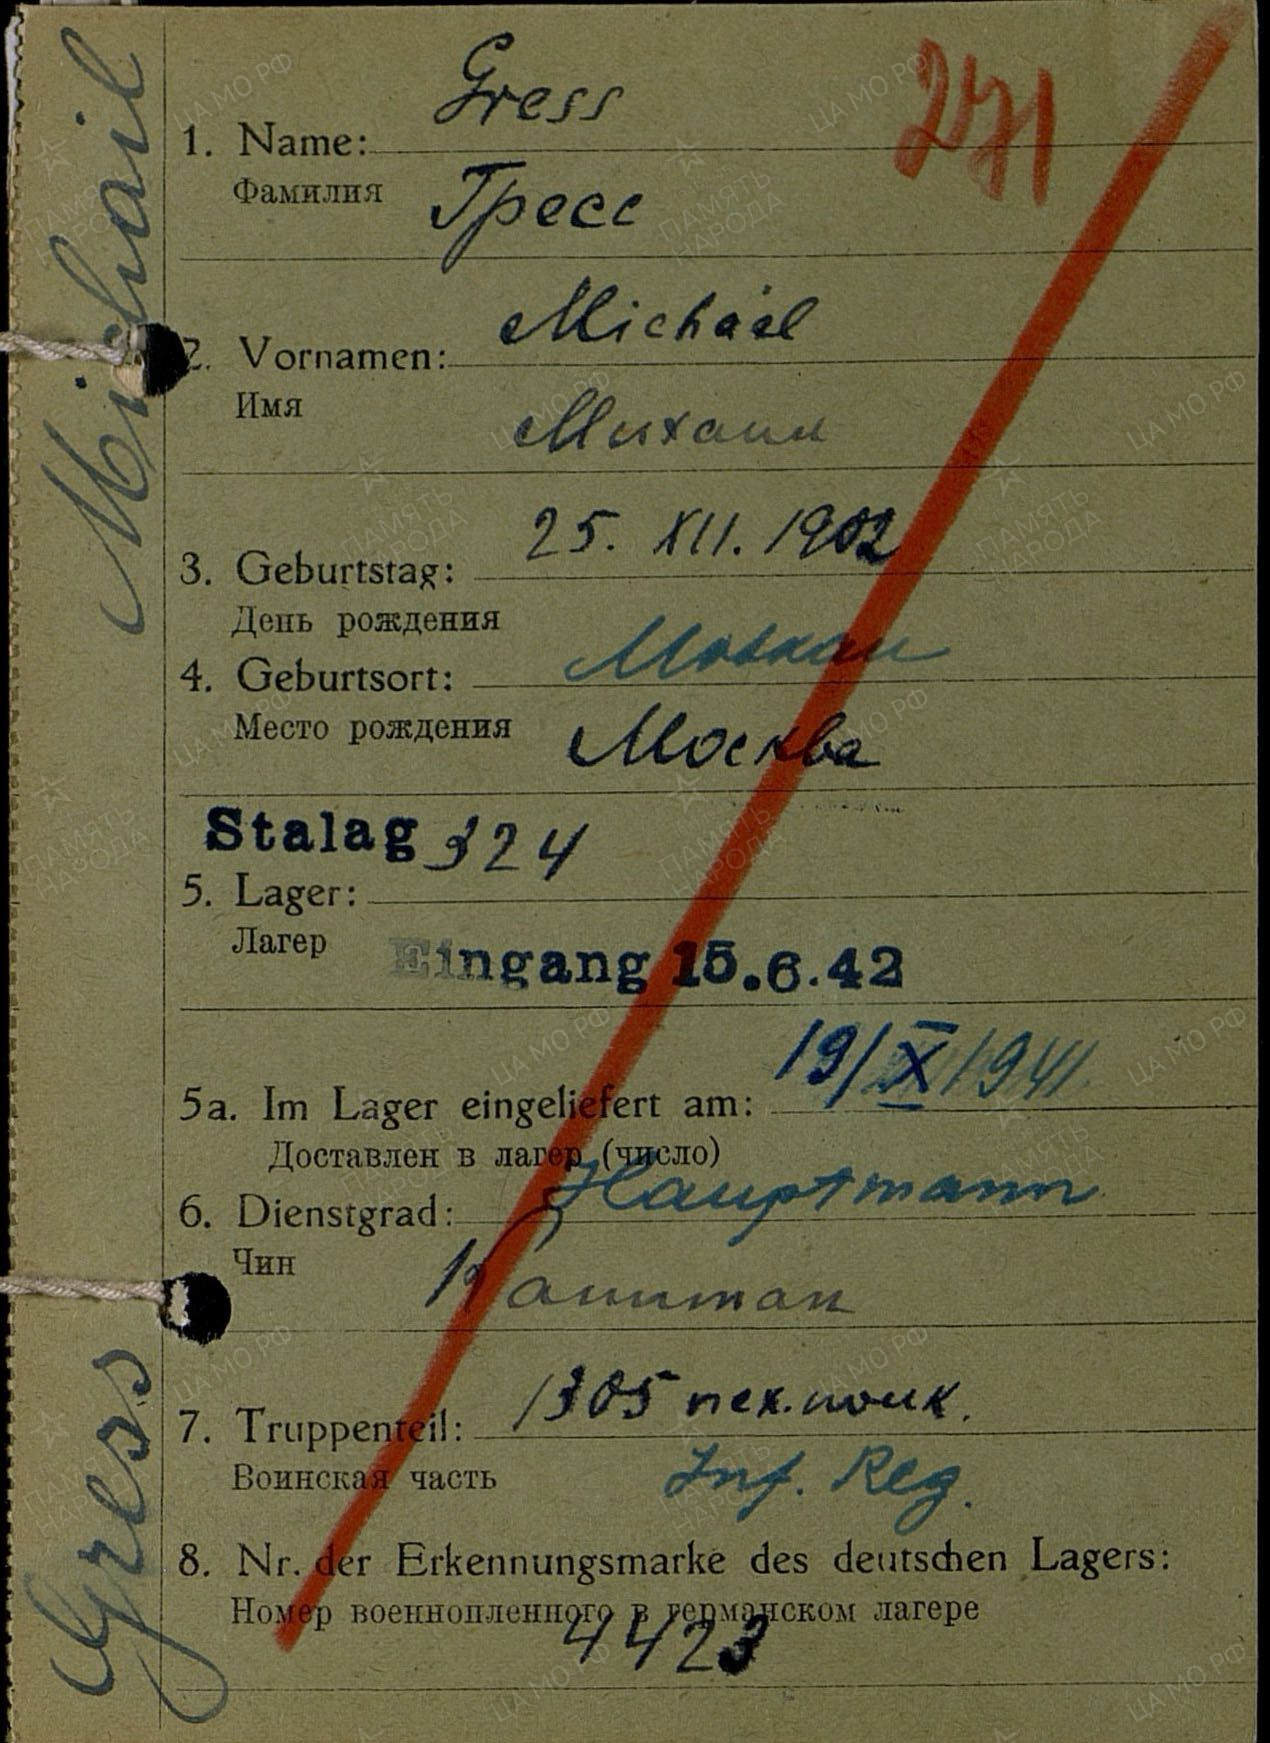 Gress
1. Name:
Фамилия Гресс
Michail
2. Vornamen:
Имя
Михаил
25. XII. 1902
3. Geburtstag:
День рождения
Moskau
4. Geburtsort:
Место рождения
Москва
Stalag 324
5. Lager:
Лагер
Eingang 15.6.42
19/X 1941.
5a. Im Lager eingeliefert am:
Доставлен в лагер (число)
Hauptmann
6. Dienstgrad:
Чин
Капитан
1305 пех. полк.
7. Truppenteil:
Воинская часть
Inf. Reg.
8. Nr. der Erkennungsmarke des deutschen Lagers:
Номер военнопленного в германском лагере
4423
271
Gress Michail
ЦА МО РФ
ПАМЯТЬ
НАРОДА